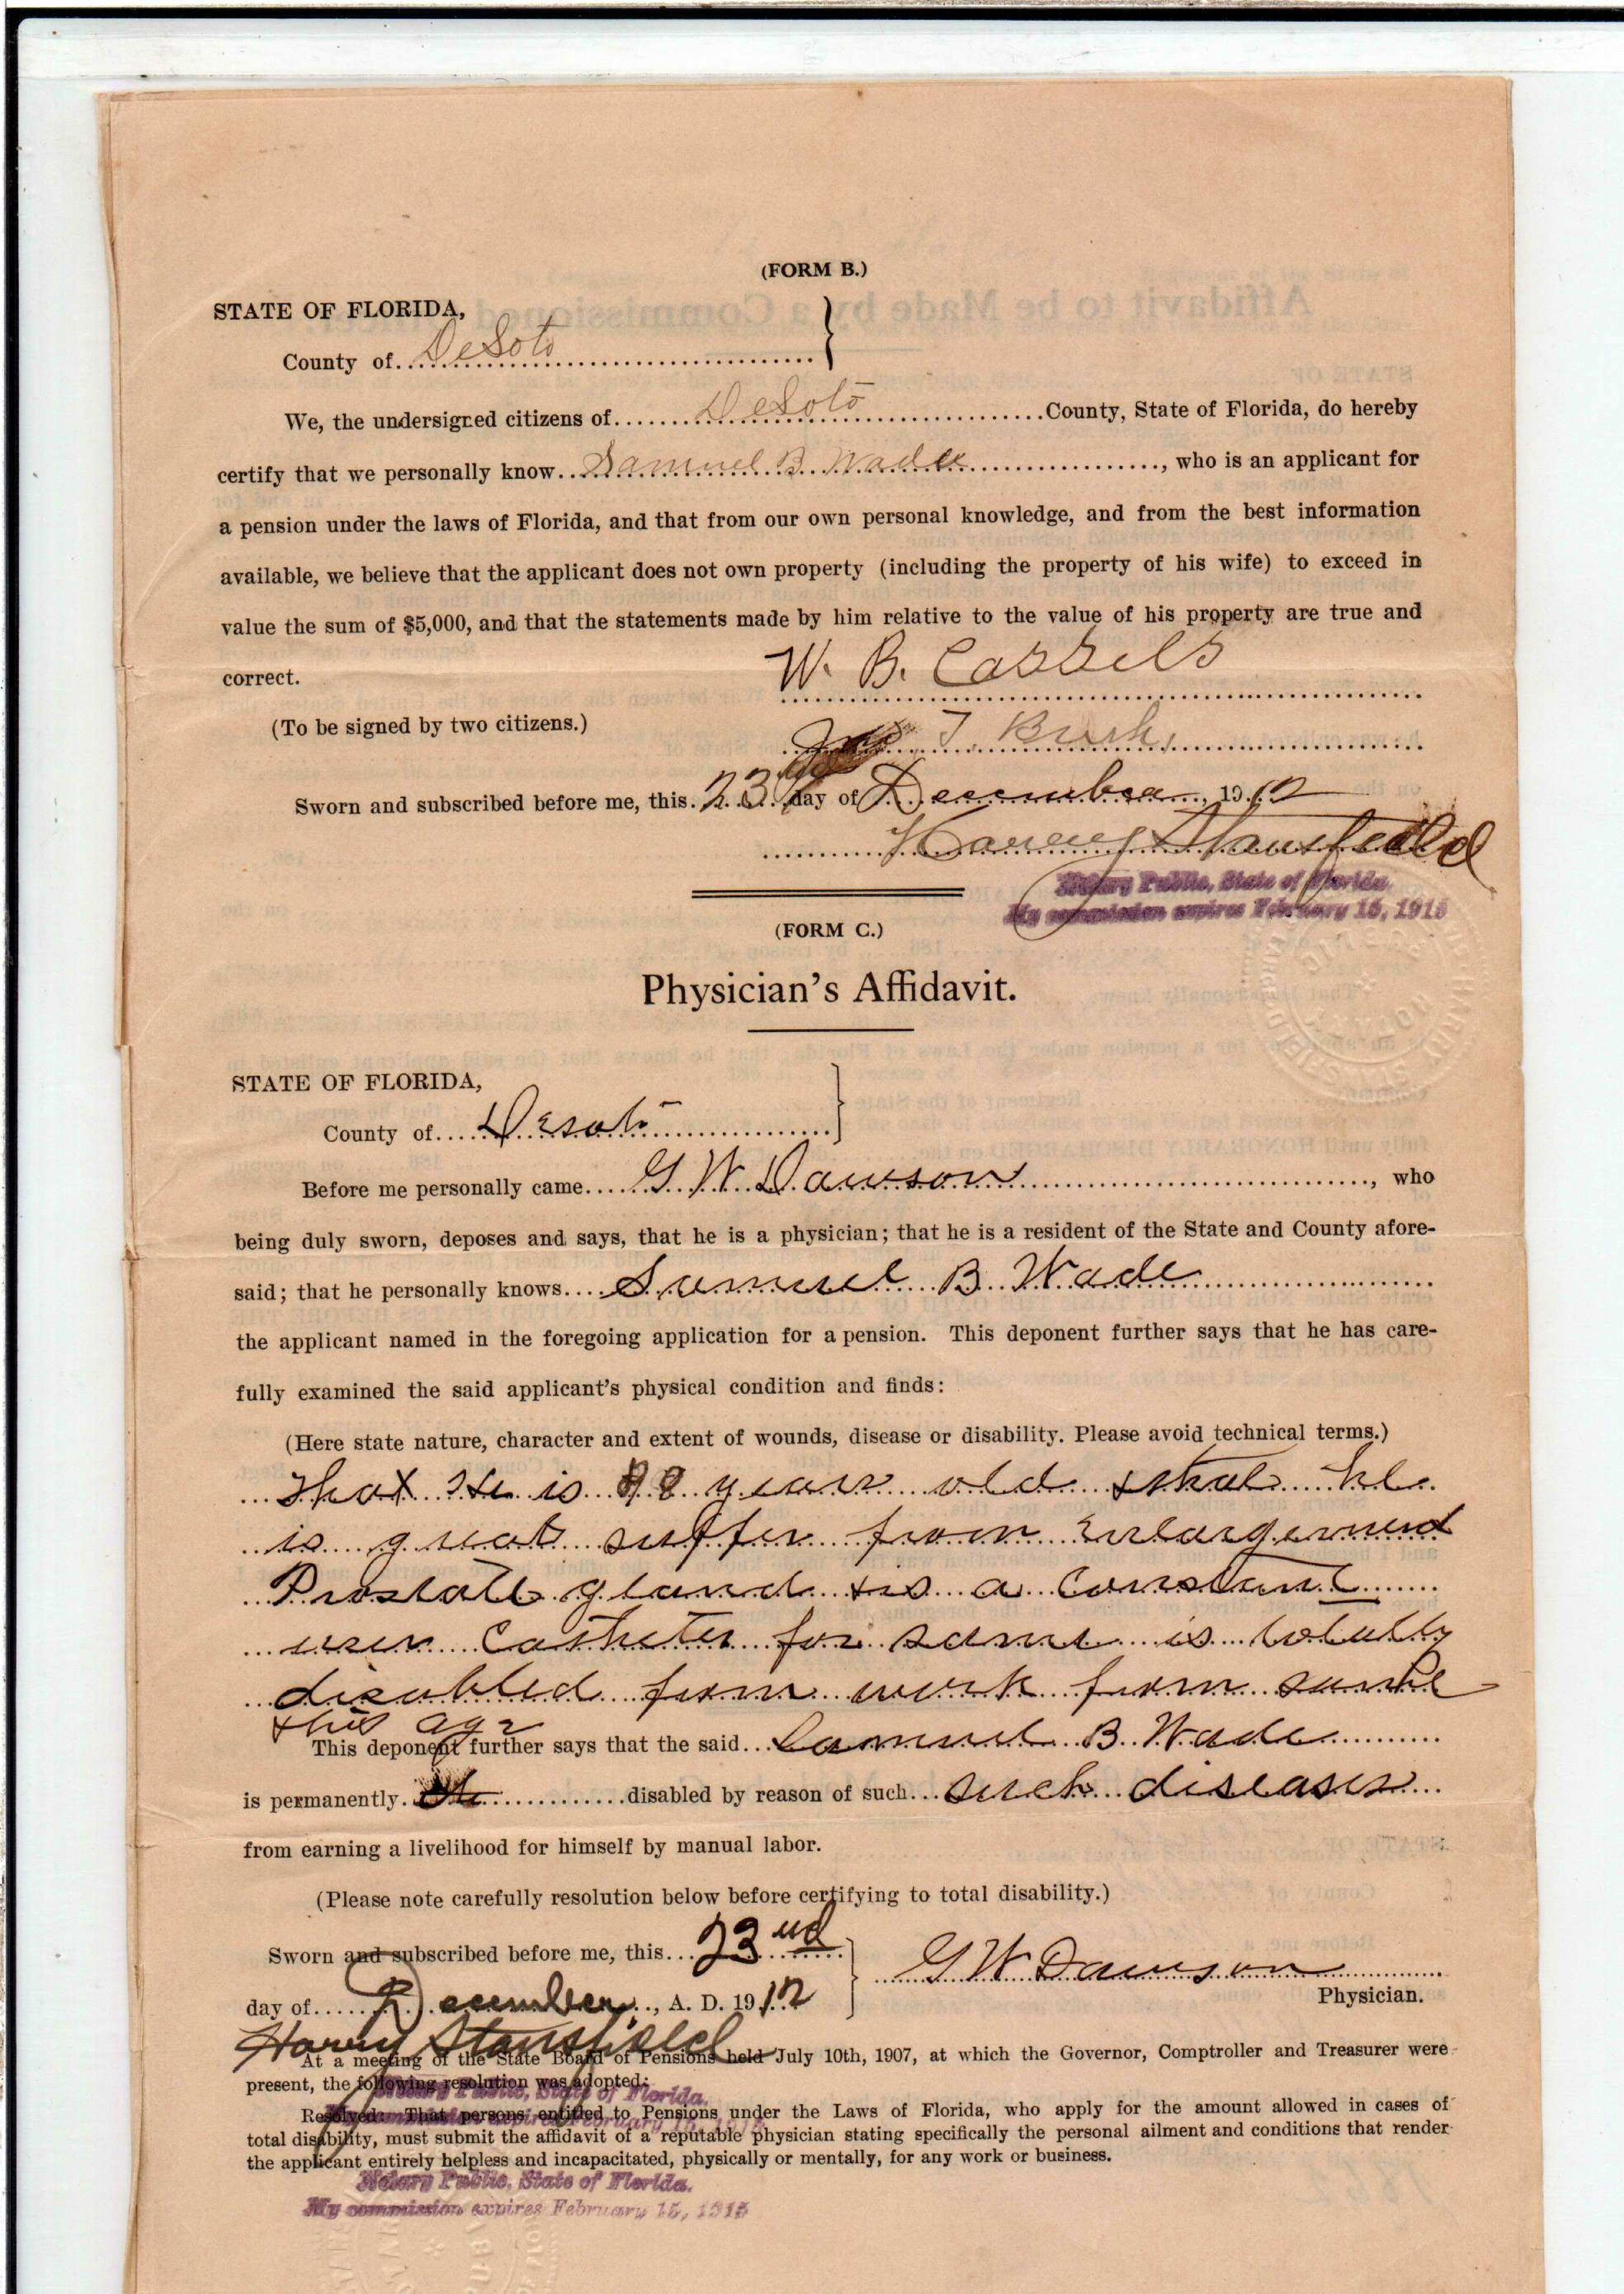 (FORM B.)
STATE OF FLORIDA,
County of DeSoto
We, the undersigned citizens of DeSoto County, State of Florida, do hereby
certify that we personally know Samuel B. Wade, who is an applicant for
a pension under the laws of Florida, and that from our own personal knowledge, and from the best information
available, we believe that the applicant does not own property (including the property of his wife) to exceed in
value the sum of $5,000, and that the statements made by him relative to the value of his property are true and
correct.
W. B. Cassels
(To be signed by two citizens.)
T. Bush
Sworn and subscribed before me, this 23 day of December, 1912
Harry Stansfield
Notary Public, State of Florida.
My commission expires February 15, 1915
(FORM C.)
Physician's Affidavit.
STATE OF FLORIDA,
County of Desoto
Before me personally came G. W. Dawson, who
being duly sworn, deposes and says, that he is a physician; that he is a resident of the State and County afore-
said; that he personally knows Samuel B. Wade
the applicant named in the foregoing application for a pension. This deponent further says that he has care-
fully examined the said applicant's physical condition and finds:
(Here state nature, character and extent of wounds, disease or disability. Please avoid technical terms.)
That He is years old & that he
is great suffer from Enlargement
Prostate gland & is a Constant
user Catheter for same is totally
disabled from work from same
& his age
This deponent further says that the said Samuel B. Wade
is permanently disabled by reason of such such diseases
from earning a livelihood for himself by manual labor.
(Please note carefully resolution below before certifying to total disability.)
Sworn and subscribed before me, this 23nd
day of December, A. D. 1912
G W Dawson
Physician.
Harry Stansfield
At a meeting of the State Board of Pensions held July 10th, 1907, at which the Governor, Comptroller and Treasurer were
present, the following resolution was adopted:
Notary Public, State of Florida.
Resolved: That persons entitled to Pensions under the Laws of Florida, who apply for the amount allowed in cases of
total disability, must submit the affidavit of a reputable physician stating specifically the personal ailment and conditions that render
the applicant entirely helpless and incapacitated, physically or mentally, for any work or business.
Notary Public, State of Florida.
My commission expires February 15, 1915